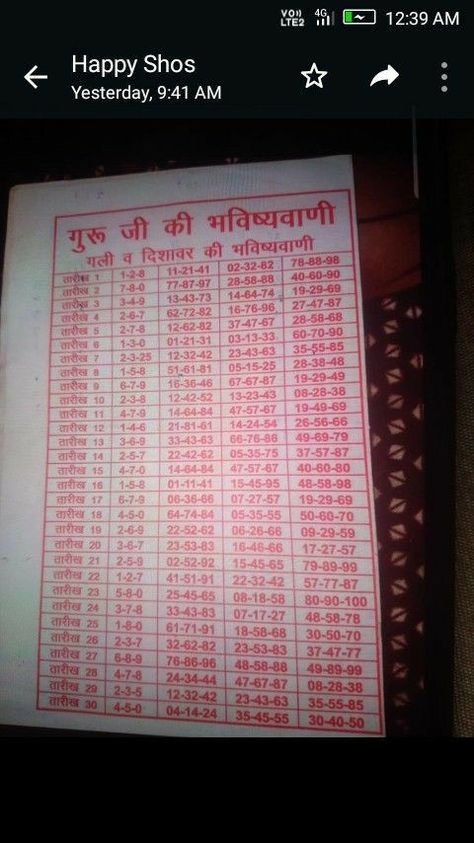 VO)) LTE2 4G 12:39 AM
Happy Shos
Yesterday, 9:41 AM
गुरू जी की भविष्यवाणी
गली व दिशावर की भविष्यवाणी
तारीख 1 1-2-8 11-21-41 02-32-82 78-88-98
तारीख 2 7-8-0 77-87-97 28-58-88 40-60-90
तारीख 3 3-4-9 13-43-73 14-64-74 19-29-69
तारीख 4 2-6-7 62-72-82 16-76-96 27-47-87
तारीख 5 2-7-8 12-62-82 37-47-67 28-58-68
तारीख 6 1-3-0 01-21-31 03-13-33 60-70-90
तारीख 7 2-3-25 12-32-42 23-43-63 35-55-85
तारीख 8 1-5-8 51-61-81 05-15-25 28-38-48
तारीख 9 6-7-9 16-36-46 67-67-87 19-29-49
तारीख 10 2-3-8 12-42-52 13-23-43 08-28-38
तारीख 11 4-7-9 14-64-84 47-57-67 19-49-69
तारीख 12 1-4-6 21-81-61 14-24-54 26-56-66
तारीख 13 3-6-9 33-43-63 66-76-86 49-69-79
तारीख 14 2-5-7 22-42-62 05-35-75 37-57-87
तारीख 15 4-7-0 14-64-84 47-57-67 40-60-80
तारीख 16 1-5-8 01-11-41 15-45-95 48-58-98
तारीख 17 6-7-9 06-36-66 07-27-57 19-29-69
तारीख 18 4-5-0 64-74-84 05-35-55 50-60-70
तारीख 19 2-6-9 22-52-62 06-26-66 09-29-59
तारीख 20 3-6-7 23-53-83 16-46-66 17-27-57
तारीख 21 2-5-9 02-52-92 15-45-65 79-89-99
तारीख 22 1-2-7 41-51-91 22-32-42 57-77-87
तारीख 23 5-8-0 25-45-65 08-18-58 80-90-100
तारीख 24 3-7-8 33-43-83 07-17-27 48-58-78
तारीख 25 1-8-0 61-71-91 18-58-68 30-50-70
तारीख 26 2-3-7 32-62-82 23-53-83 37-47-77
तारीख 27 6-8-9 76-86-96 48-58-88 49-89-99
तारीख 28 4-7-8 24-34-44 47-67-87 08-28-38
तारीख 29 2-3-5 12-32-42 23-43-63 35-55-85
तारीख 30 4-5-0 04-14-24 35-45-55 30-40-50